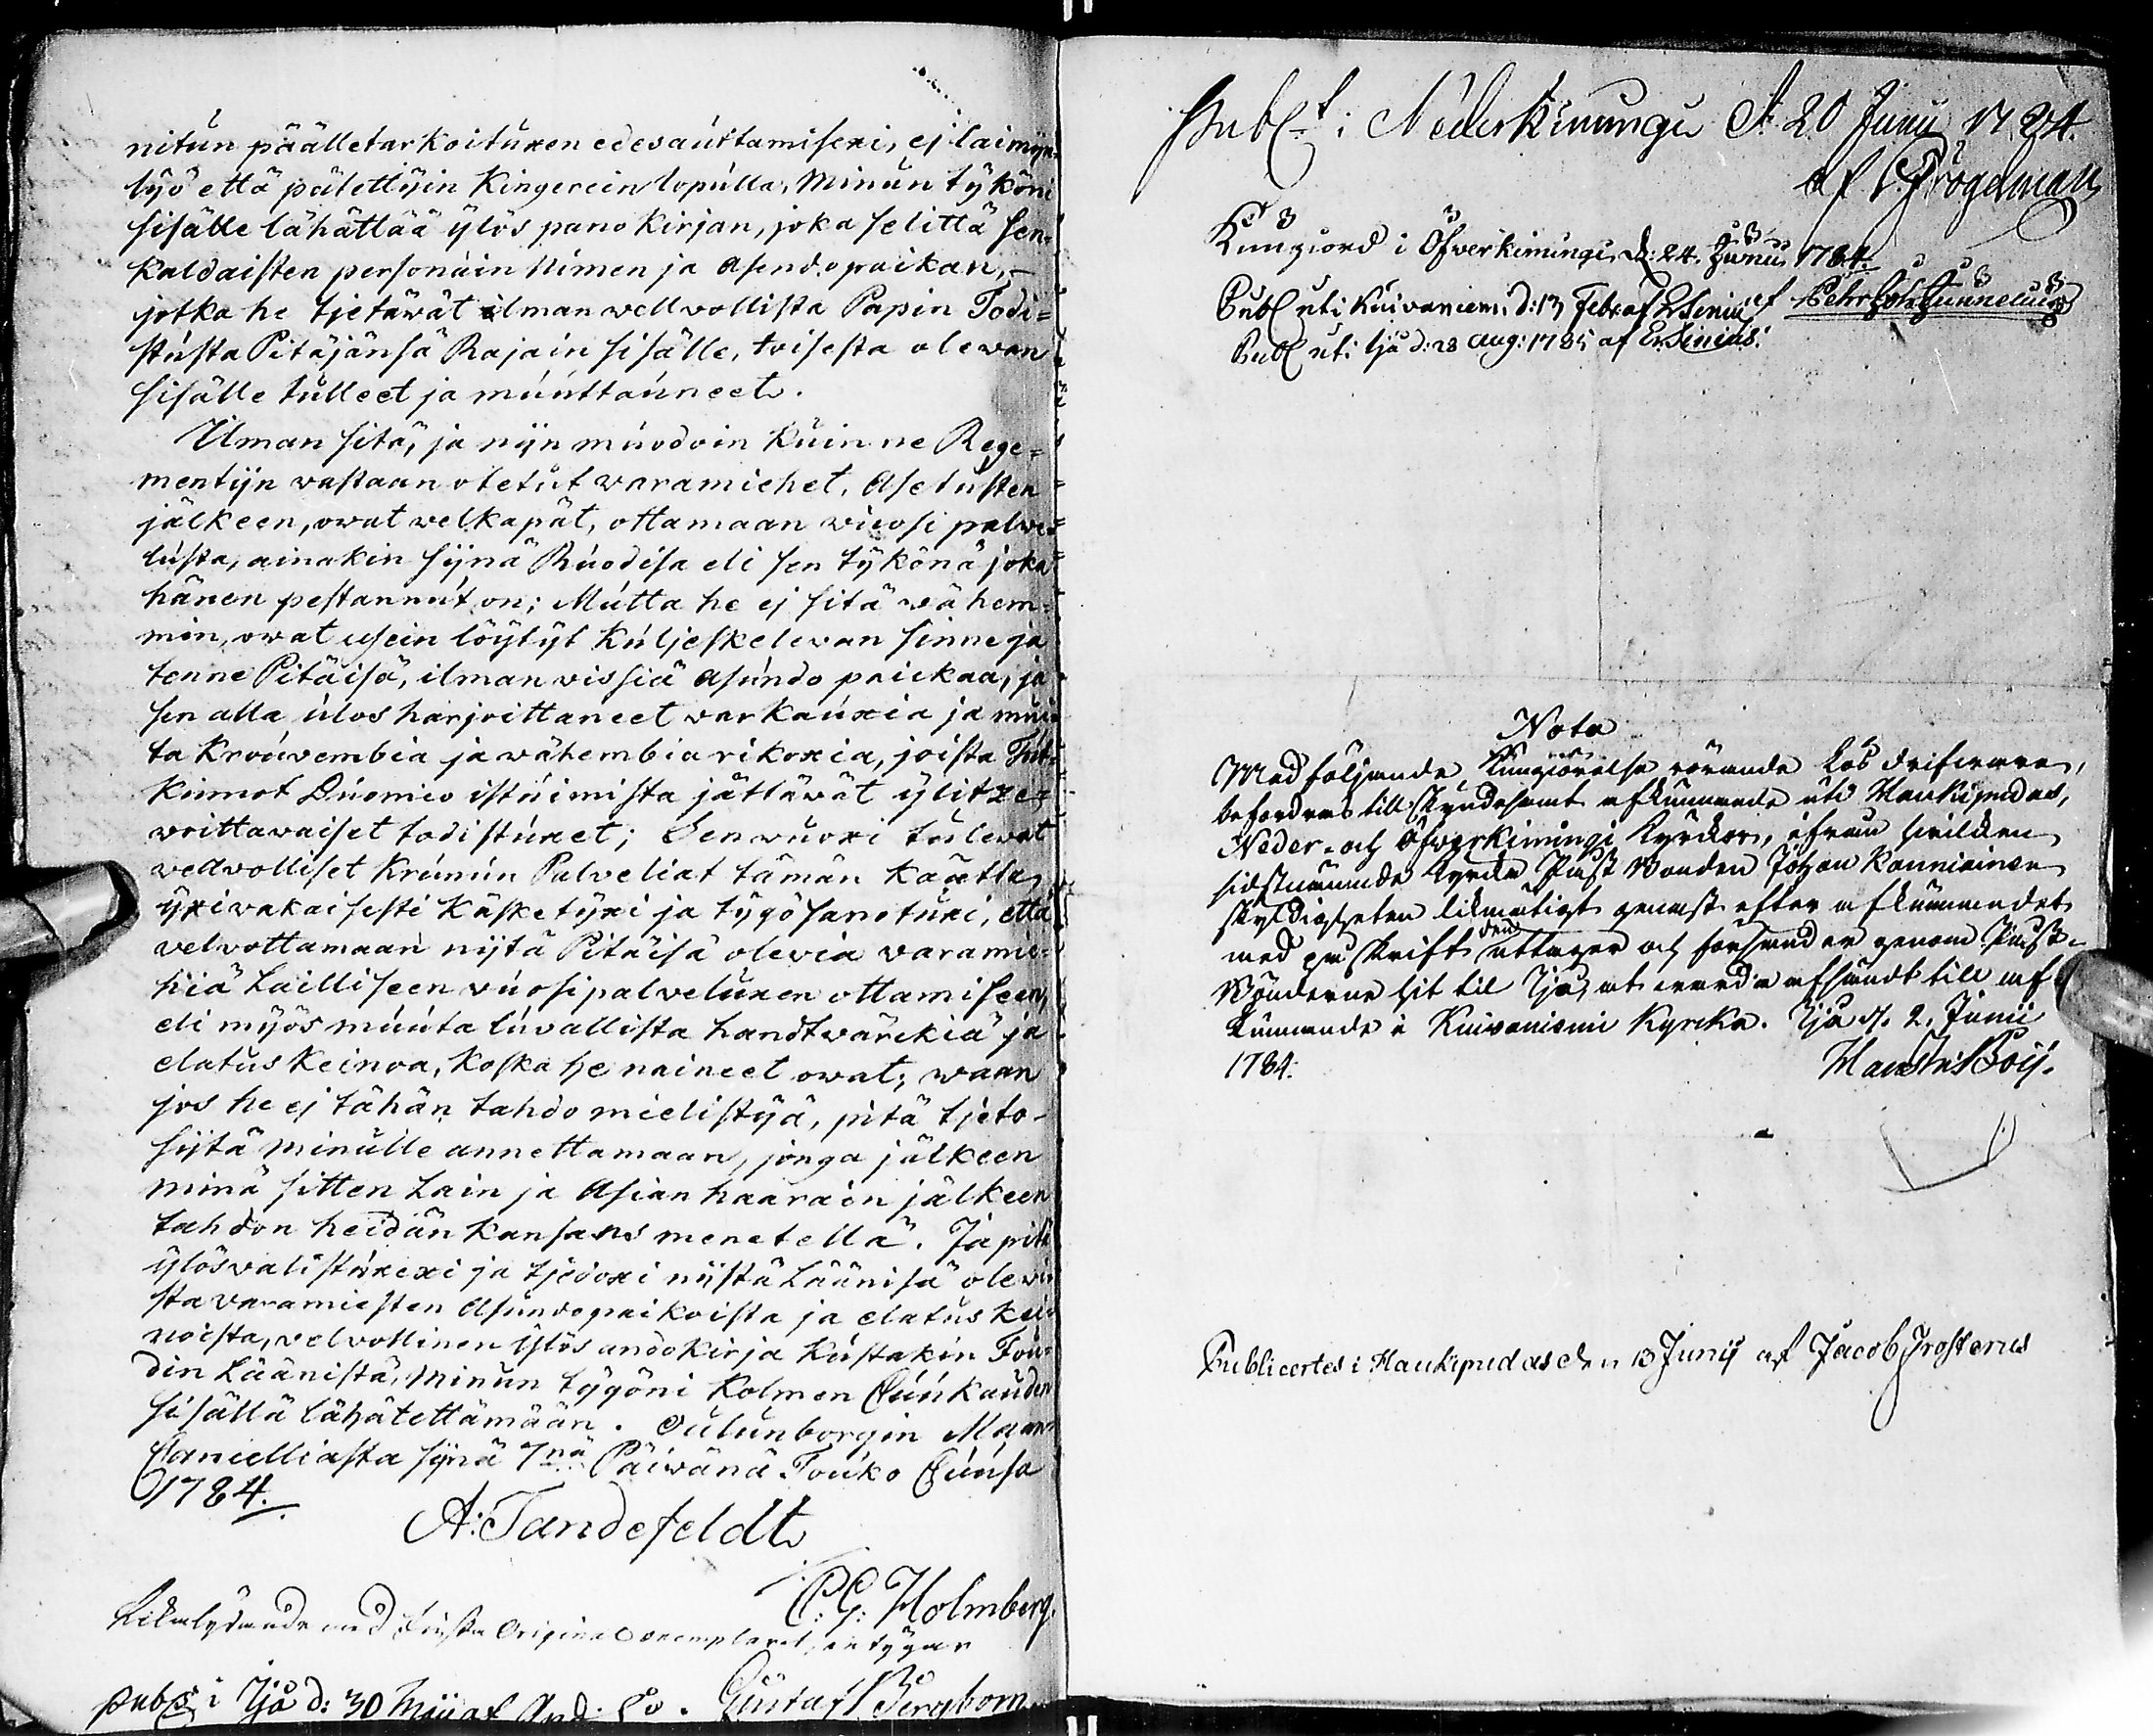 nitun päälletarkoituxen edesauttamisexi, ej laimyn-
lyö että pätettyin Kingerein lopulla, Minun tyköni
sisälle lähättää ÿlös pano Kirjan, joka selittä sen-
kaldaisten personain Nimen ja Asendopaikan,
jotka he tjetäwät ilman wellvollista Papin Todi=
stusta Pitäjänsä Rajain sisälle, toisesta olewan
sisälle tulleet ja muuttauneet.
Ilman sitä, ja nijn muodoin kuin ne Rege=
mentijn wastaan otetut waramiehet, Asetusten
jälkeen, owat welkapät, ottamaan wuosi palwe=
lusta, ainakin sijnä Ruodisa eli sen tykönä joka
hänen pestannut on; Mutta he ej sitä wähem=
min, owat usein löytyt Kuljeskelevan sinne ja
tenne Pitäisä, ilman vissiä Asundo paickaa, ja
sen alla ulos harjoittaneet varkauxia ja mui
ta krouvembia ja wähembia rikoxia, joista Tut=
kinnot Duomio istuimista jättäwät ylitze=
woittavaiset todistuxet; Sen wuoxi tulewat
vellvolliset Krunun Palveliat tämän kautta,
yxivakaisesti Käsketyxi ja tygösanotuxi, että
velvottamaan nijtä Pitäisä olevia varamie=
hiä Lailliseen vuosipalveluxen ottamiseen,
eli myös muuta luvallista handtwärckiä ja
elatus keinoa, koska he naineet owat; waan
jos he ej tähän tahdo mielistyä, pitä tjeto-
sijtä Minulle annettamaan, jonga jälkeen
minä sitten Lain ja Asian haarain jälkeen
tahdon heidän Kansans menetellä. Ja pitä
ylösvalistuxexi ja tjedoxi nijstä Läänisä olevi
sta varamiesten Asundopaikoista ja elatus kei=
noista, velvollinen Ylös andokirja kustakin Fou=
din Läänistä, Minun tygöni Kolmen Cuukauden
sisällä lähätettämään. Oulunborgin Maan
Cancelliasta sijnä 7nä Päiwänä Touko Cuusa
1784.
A: Tandefeldt
C: G: Holmberg.
Likalydande med Finska Original exemplaret, intygar
Gustaf Bergbom
publ i Ijå d: 30 Maij af And:
Publt i Nederkimingi d. 20 Junii 1784.
af Frogdman
Kungiord i Öfverkimingi d: 24. Junii 1784.
af Pehr Joh Junnelius
Publ uti Kuivaniemi d: 13 Febr af E. Senius
Publ uti Ijå d: 28 Aug: 1785 af Er. Senius.
Nota
Medföljande Kungiörelse rörande Lösdrifvare,
befordras till skyndesamt afkunnande uti Haukipudas,
Neder- och Öfverkimingi Kyrkor, ifrån hvilken
sidstnämnde Kyrka Påst Bonden Johan Kanniainen
skyldigheten likmätigt genast efter afkunnandet
med påskrift den uttager och försänder genom Påst-
Bönderne hit til Ijå, at vara afsändt till af-
kunnande i Kuivaniemi Kyrka. Ijå d. 2. Junii
1784.
Publicertes i Haukipudas den 13 Junij af Jacob Frosterus